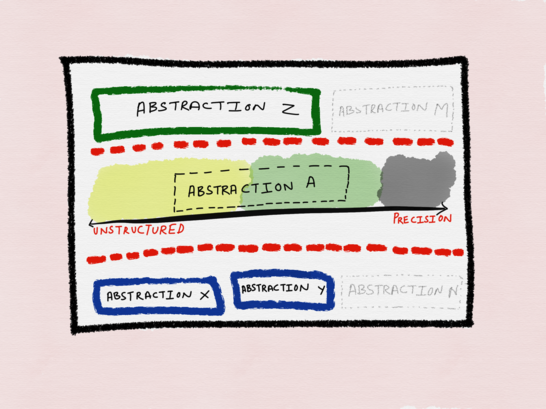 ABSTRACTION Z
ABSTRACTION M
ABSTRACTION A
UNSTRUCTURED
PRECISION
ABSTRACTION X
ABSTRACTION Y
ABSTRACTION N